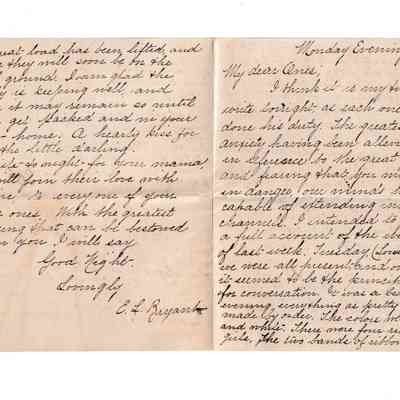 reat load has been lifted, and
they will soon be on the
ground. I am glad the
is keeping well, and
it may remain so until
get packed and in your
home. A hearty kiss for
the little darling.
to-night for your mama,
will join their love with
to everyone of your
ones. With the greatest
that can be bestowed
you I will say
Good Night.
Lovingly
C. L. Bryant
Monday Evening
My dear Ones;
I think it is my
write to-night, as each one
done his duty. The greatest
anxiety having been
in reference to the great
and fearing that you
in danger, our minds
capable of extending in
channel. I intended to
a full account of the
of last week, Tuesday,
we were all present, and
it seemed to be the
for conversation. It was a
evening everything as pretty
made by order. The colors
and white. There were four
girls, the two bands of ribbon